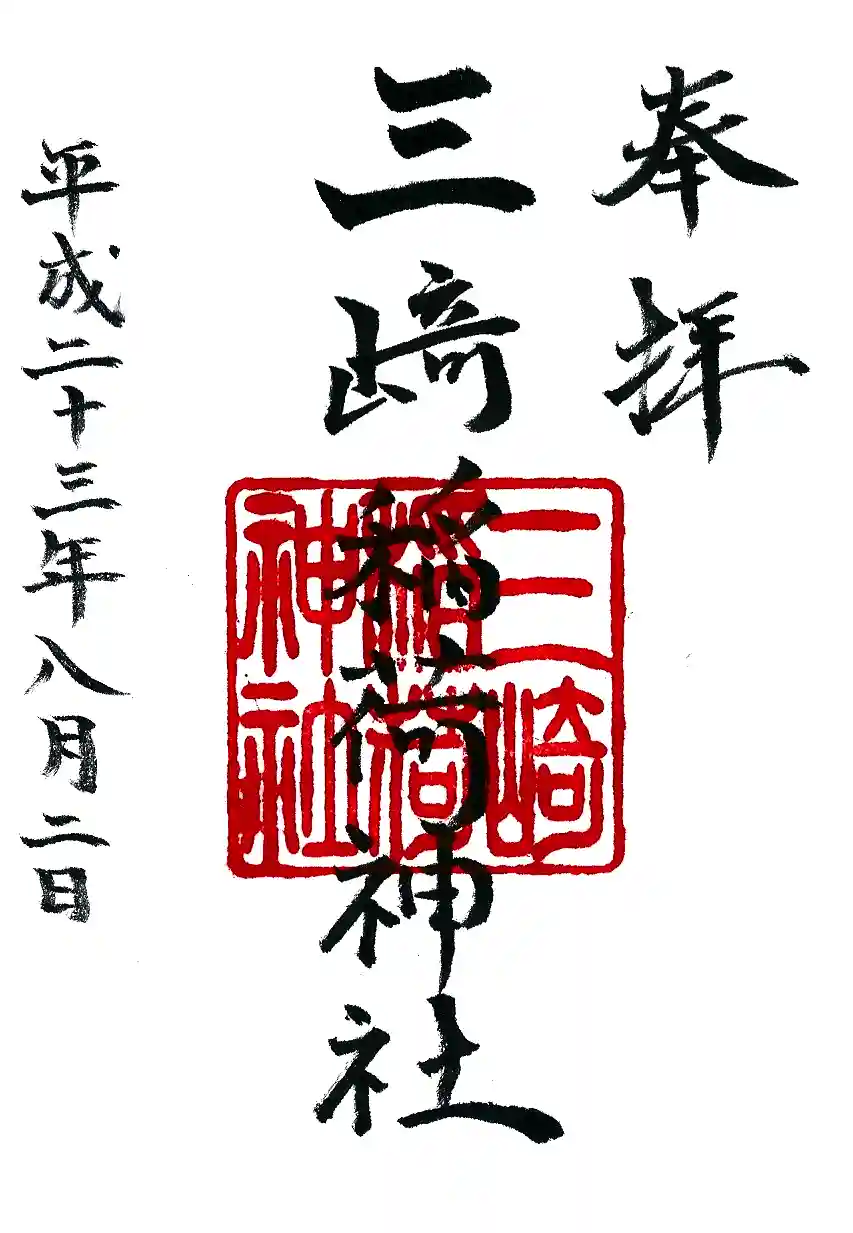 奉拝
三崎稲荷神社
三崎
稲荷
神社
平成二十三年八月二日